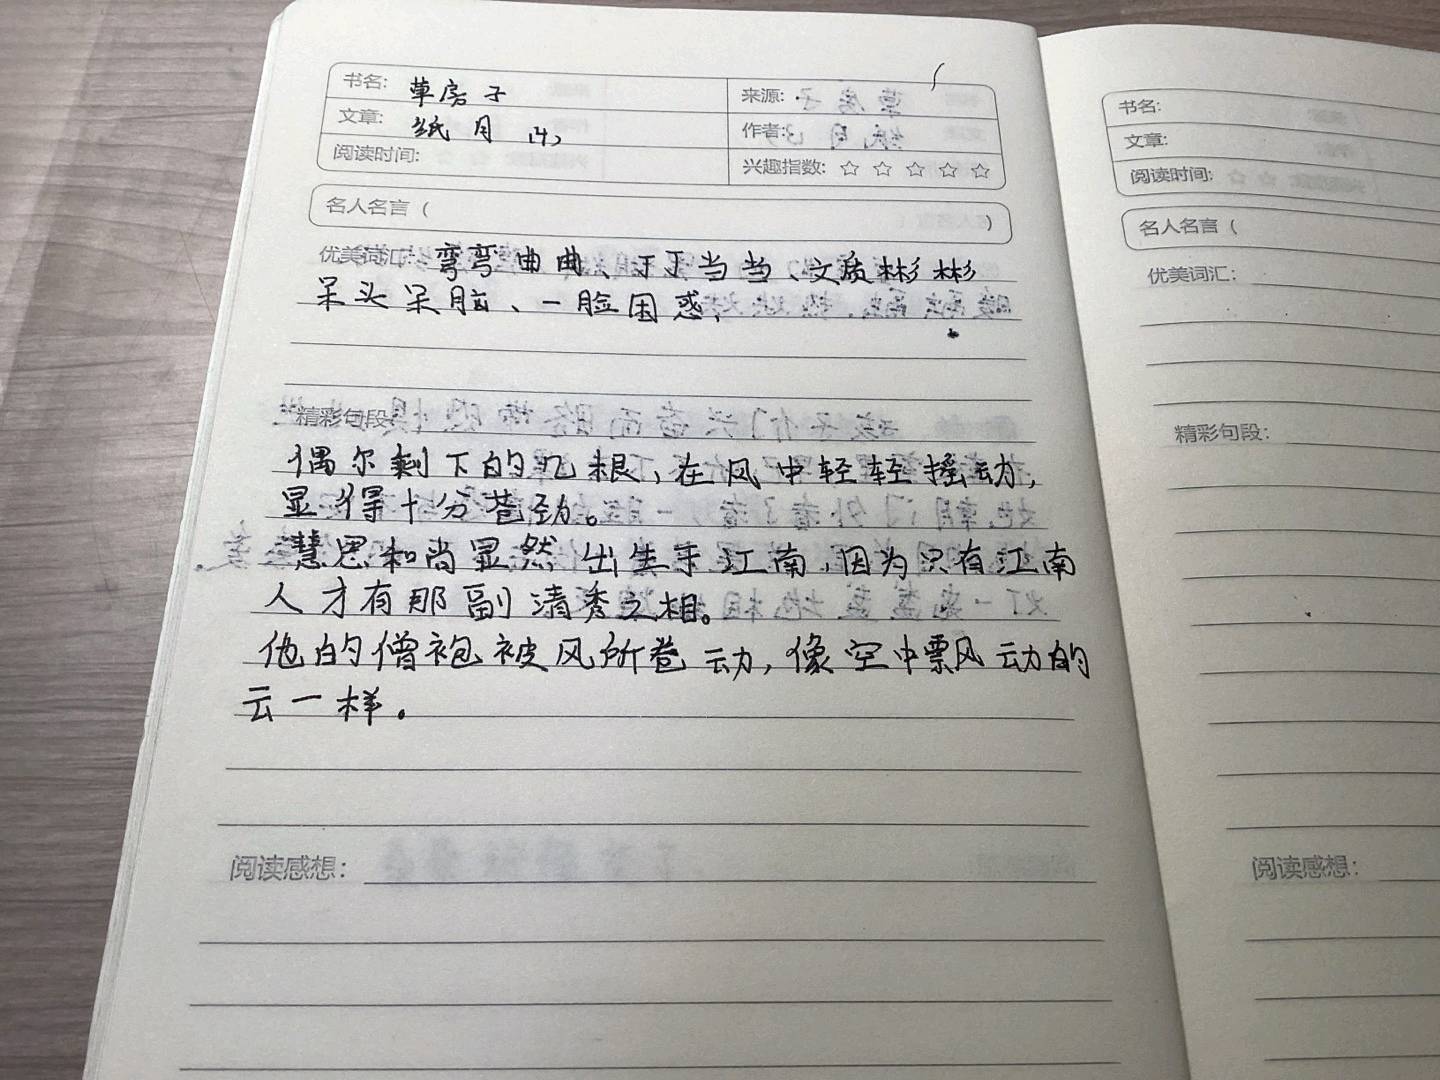 书名: 草房子
来源:
文章: 纸月 (4)
作者:
阅读时间:
兴趣指数: ☆ ☆ ☆ ☆ ☆
名人名言 ( )
优美词汇: 弯弯曲曲、丁丁当当、文质彬彬
呆头呆脑、一脸困惑、
精彩句段:
偶尔剩下的几根,在风中轻轻摇动,
显得十分苍劲。
慧思和尚显然出生于江南,因为只有江南
人才有那副清秀之相。
他的僧袍被风所卷动,像空中飘动的
云一样。
阅读感想:
书名:
文章:
阅读时间:
名人名言 (
优美词汇:
精彩句段:
阅读感想: